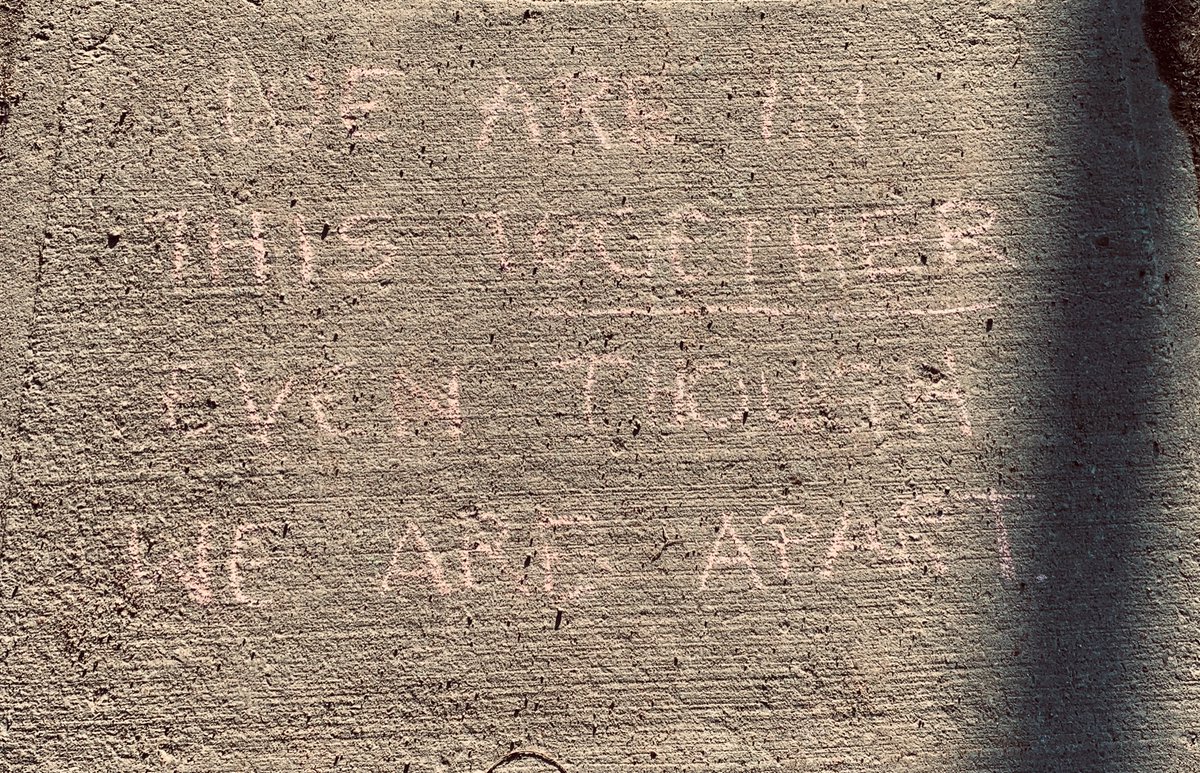 WE ARE IN
THIS TOGETHER
EVEN THOUGH
WE ARE APART